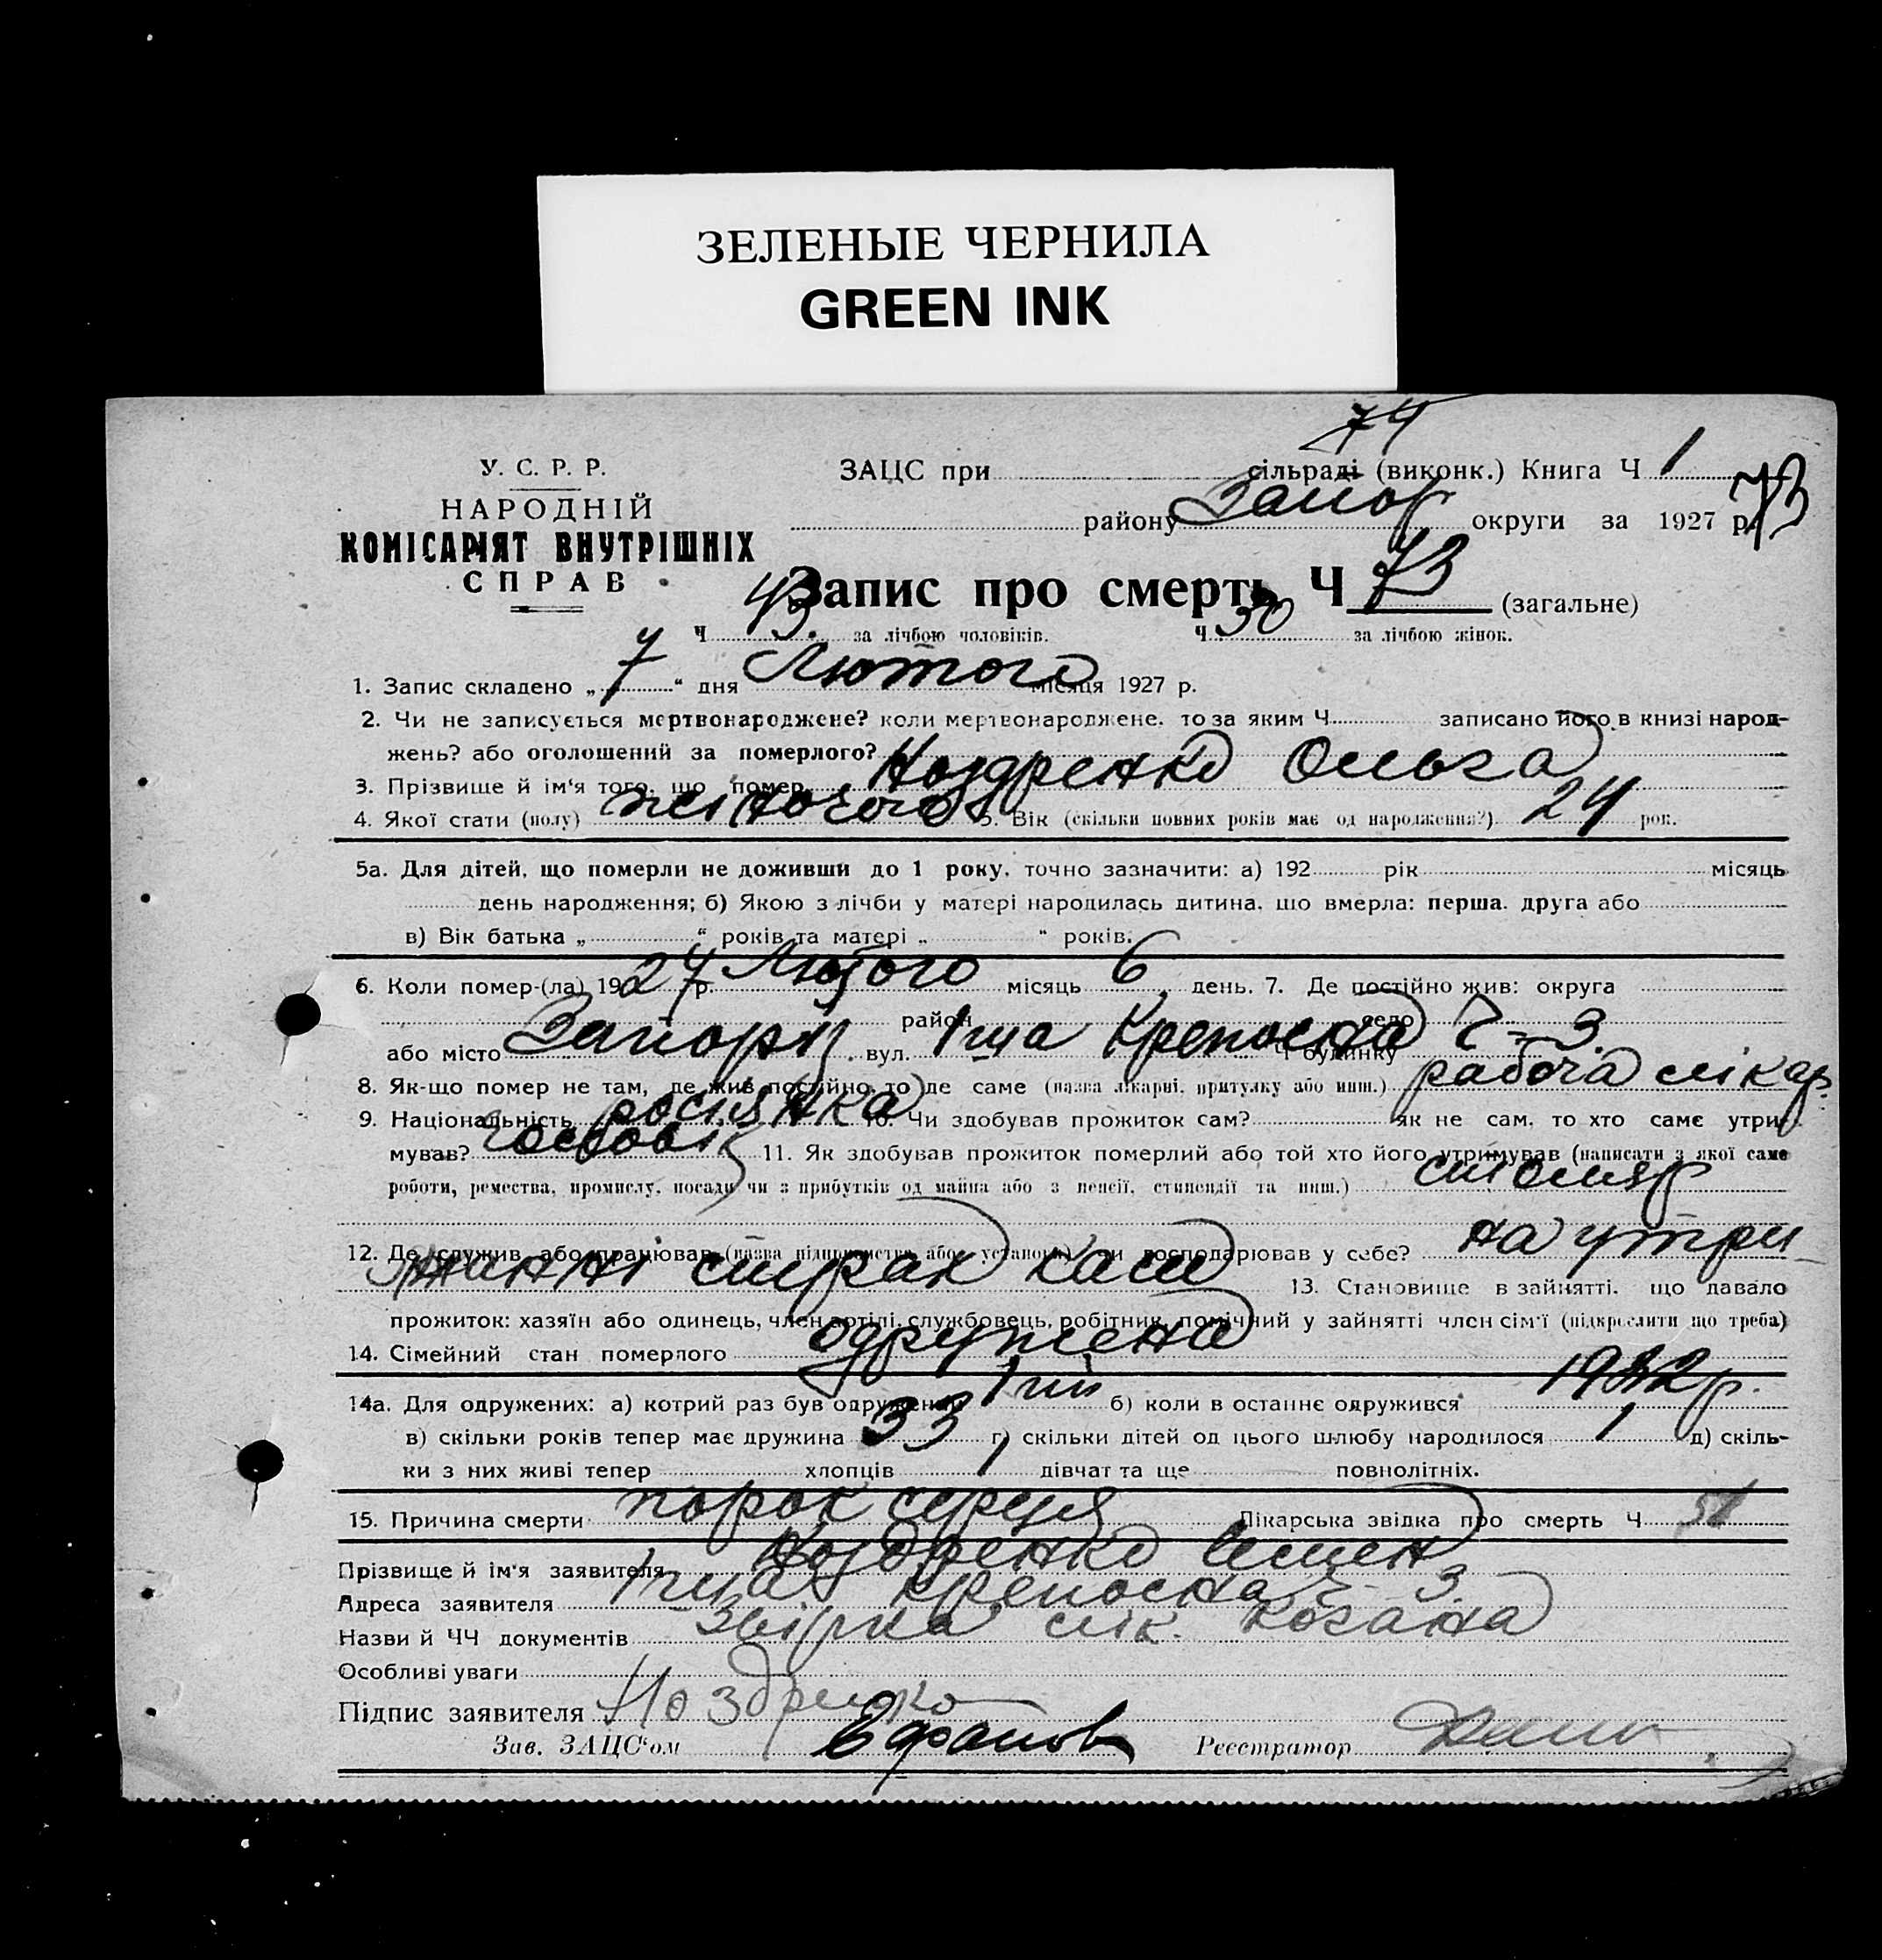 ЗЕЛЕНЫЕ ЧЕРНИЛА
GREEN INK
74
У. С. Р. Р.
НАРОДНІЙ
КОМІСАРІЯТ ВНУТРІШНІХ
СПРАВ
ЗАЦС при сільраді (виконк.) Книга Ч 1
району Запор округи за 1927 р. 73
Запис про смерть Ч 73 (загальне)
Ч 43. за лічбою чоловіків. Ч 30 за лічбою жінок.
1. Запис складено „ 7 “ дня Лютого місяця 1927 р.
2. Чи не записується мертвонароджене? коли мертвонароджене, то за яким Ч записано його в книзі народ-
жень? або оголошений за померлого?
3. Прізвище й ім'я того, що помер Ноздренко Ольга
4. Якої стати (полу) жіночого 5. Вік (скільки повних років має од народження?) 24 рок.
5а. Для дітей, що померли не доживши до 1 року, точно зазначити: а) 192 рік місяць
день народження; б) Якою з лічби у матері народилась дитина, що вмерла: перша, друга або
в) Вік батька „ “ років та матері „ “ років.
6. Коли помер-(ла) 1927 р. Лютого місяць 6 день. 7. Де постійно жив: округа
район село
або місто Запоріж. вул. 1ша Крепосна Ч будинку Ч - 3.
8. Як-що помер не там, де жив постійно, то де саме (назва лікарні, притулку або инш.) рабоча лікар.
9. Національність росіянка 10. Чи здобував прожиток сам? як не сам, то хто саме утри-
мував? чоловік 11. Як здобував прожиток померлий або той хто його утримував (написати з якої саме
роботи, ремества, промислу, посади чи з прибутків од майна або з пенсії, стипендії та инш.) столяр
12. Де служив або працював (назва підприємства або установи) чи господарював у себе? на утри-
манні страх каси 13. Становище в зайнятті, що давало
прожиток: хазяїн або одинець, член артілі, службовець, робітник, помічний у зайнятті член сім'ї (підкреслити що треба)
14. Сімейний стан померлого одружена
14а. Для одружених: а) котрий раз був одружений 1ий б) коли в останнє одружився 1922р.
в) скільки років тепер має дружина 33 г) скільки дітей од цього шлюбу народилося 1 д) скіль-
ки з них живі тепер хлопців 1 дівчат та ще повнолітніх.
15. Причина смерти порок серця Лікарська звідка про смерть Ч
Прізвище й ім'я заявителя Ноздренко Семен
Адреса заявителя 1ша Крепосна Ч - 3.
Назви й ЧЧ документів Звірка лік. Когана
Особливі уваги
Підпис заявителя Ноздренко
Зав. ЗАЦС'ом Ефанов Реєстратор